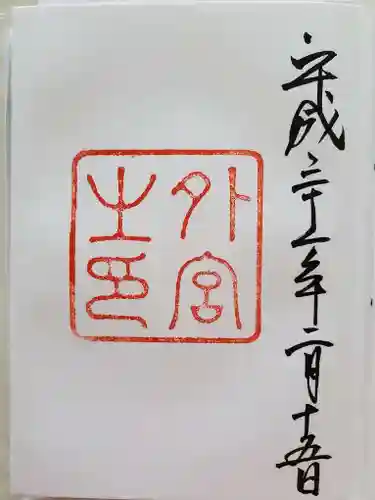 平成三十一年二月十五日
外宮
之印